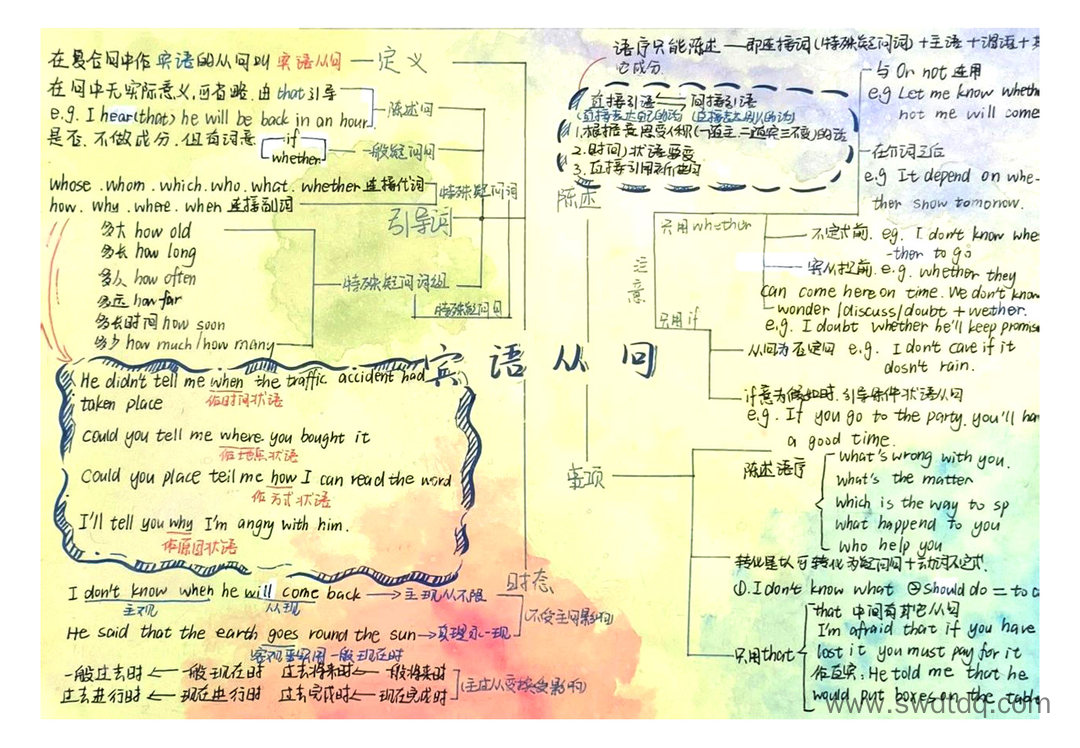 在复合句中作宾语的从句叫宾语从句 — 定义
在句中无实际意义,可省略,由that引导
e.g. I hear(that) he will be back in an hour.
陈述句
是否,不做成分,但有词意
if
whether
一般疑问句
whose.whom.which.who.what.whether 连接代词
how.why.where.when 连接副词
特殊疑问词
引导词
多大 how old
多长 how long
how often
多远 how far
多长时间 how soon
多少 how much/how many
特殊疑问词组
特殊疑问句
宾语从句
He didn't tell me when the traffic accident had
taken place
作时间状语
could you tell me where you bought it
作地点状语
Could you place teil me how I can read the word
作方式状语
I'll tell you why I'm angry with him.
作原因状语
时态
I don't know when he will come back → 主现从不限
主现
从现
He said that the earth goes round the sun → 真理永一现
一般现在时
不受主句影响
一般过去时 ← 一般现在时 过去将来时 ← 一般将来时
过去进行时 ← 现在进行时 过去完成时 ← 现在完成时
语序只能陈述 — 即连接词(特殊疑问词)+主语+谓语+其
它成分.
直接引语 间接引语
1.根据意思变人称(一随主,二随宾三不变)的话
2.时间)状语要变
3.直接引用
陈述
注意
只用whether
与Or not 连用
e.g Let me know wheth
not me will come
在介词之后
e.g It depend on whe-
ther show tomorrow.
不定式前. eg. I don't know whe
-ther to go
宾从提前. e.g. whether they
can come here on time. We don't know
wonder /discuss/doubt + wether.
e.g. I doubt whether he'll keep promis
只用if
从句为否定句 e.g. I don't cave if it
dosn't rain.
if意为假如时.引导条件状语从句
e.g. If you go to the party.you'll ha
a good time.
事项
陈述语序
what's wrong with you.
what's the matter
which is the way to sp
what happend to you
who help you
转化 可转化为疑问词+动词不定式
①.I don't know what ②should do = to d
只用that
that 中间有其它从句
I'm afraid that if you have
lost it you must pay for it
作直宾:He told me that he
would put boxes on the table
www.swdtdq.com